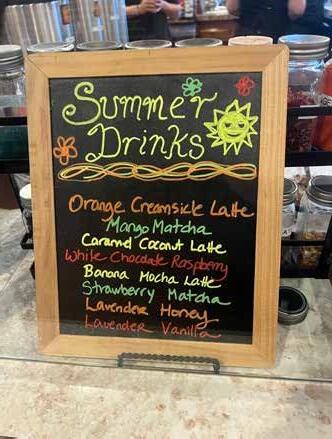 Summer
Drinks
Orange Creamsicle Latte
Mango Matcha
Caramel Coconut Latte
White Chocolate Raspberry
Banana Mocha Latte
Strawberry Matcha
Lavender Honey
Lavender Vanilla